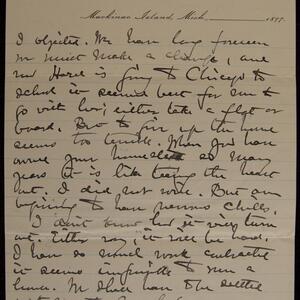 Mackinac Island, Mich. 189
I objected. We have long foreseen
we must make a change, and
now Hazel is going to Chicago to
school it seemed best for me to
go with her; either take a flat or
board. But to give up the home
seems too terrible. When you have
owned your homestead so many
years it is like tearing the heart
out. I did not work. But am
beginning to have nervous chills.
I don't know how it will turn
out. Either way, it will be hard.
I have so much work contracted
it seems impossible to run a
house. We shall have to settle